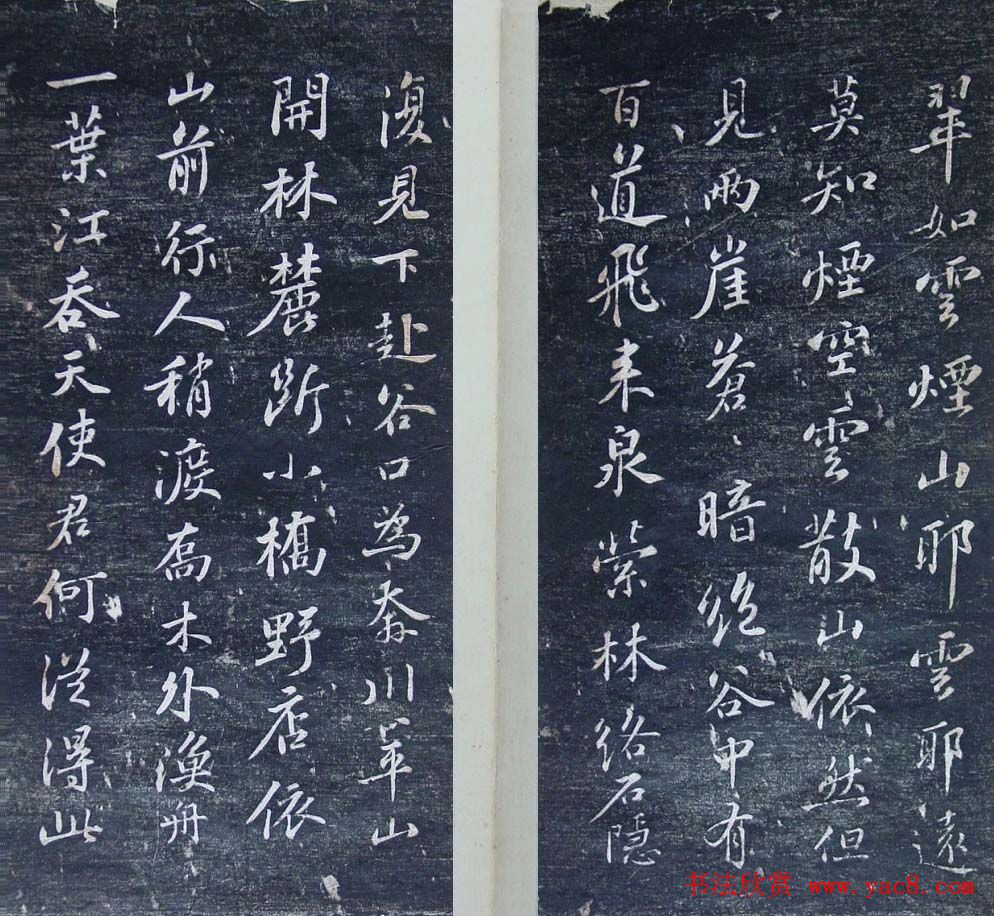 翠如雲煙山耶雲耶遠
莫知煙空雲散山依然但
見兩崖蒼々暗絕谷中有
百道飛來泉縈林絡石隱
復見下赴谷口為奔川平山
開林麓斷小橋野店依
山前行人稍渡喬木外漁舟
一葉江吞天使君何從得此
书法欣赏 www.yac8.com